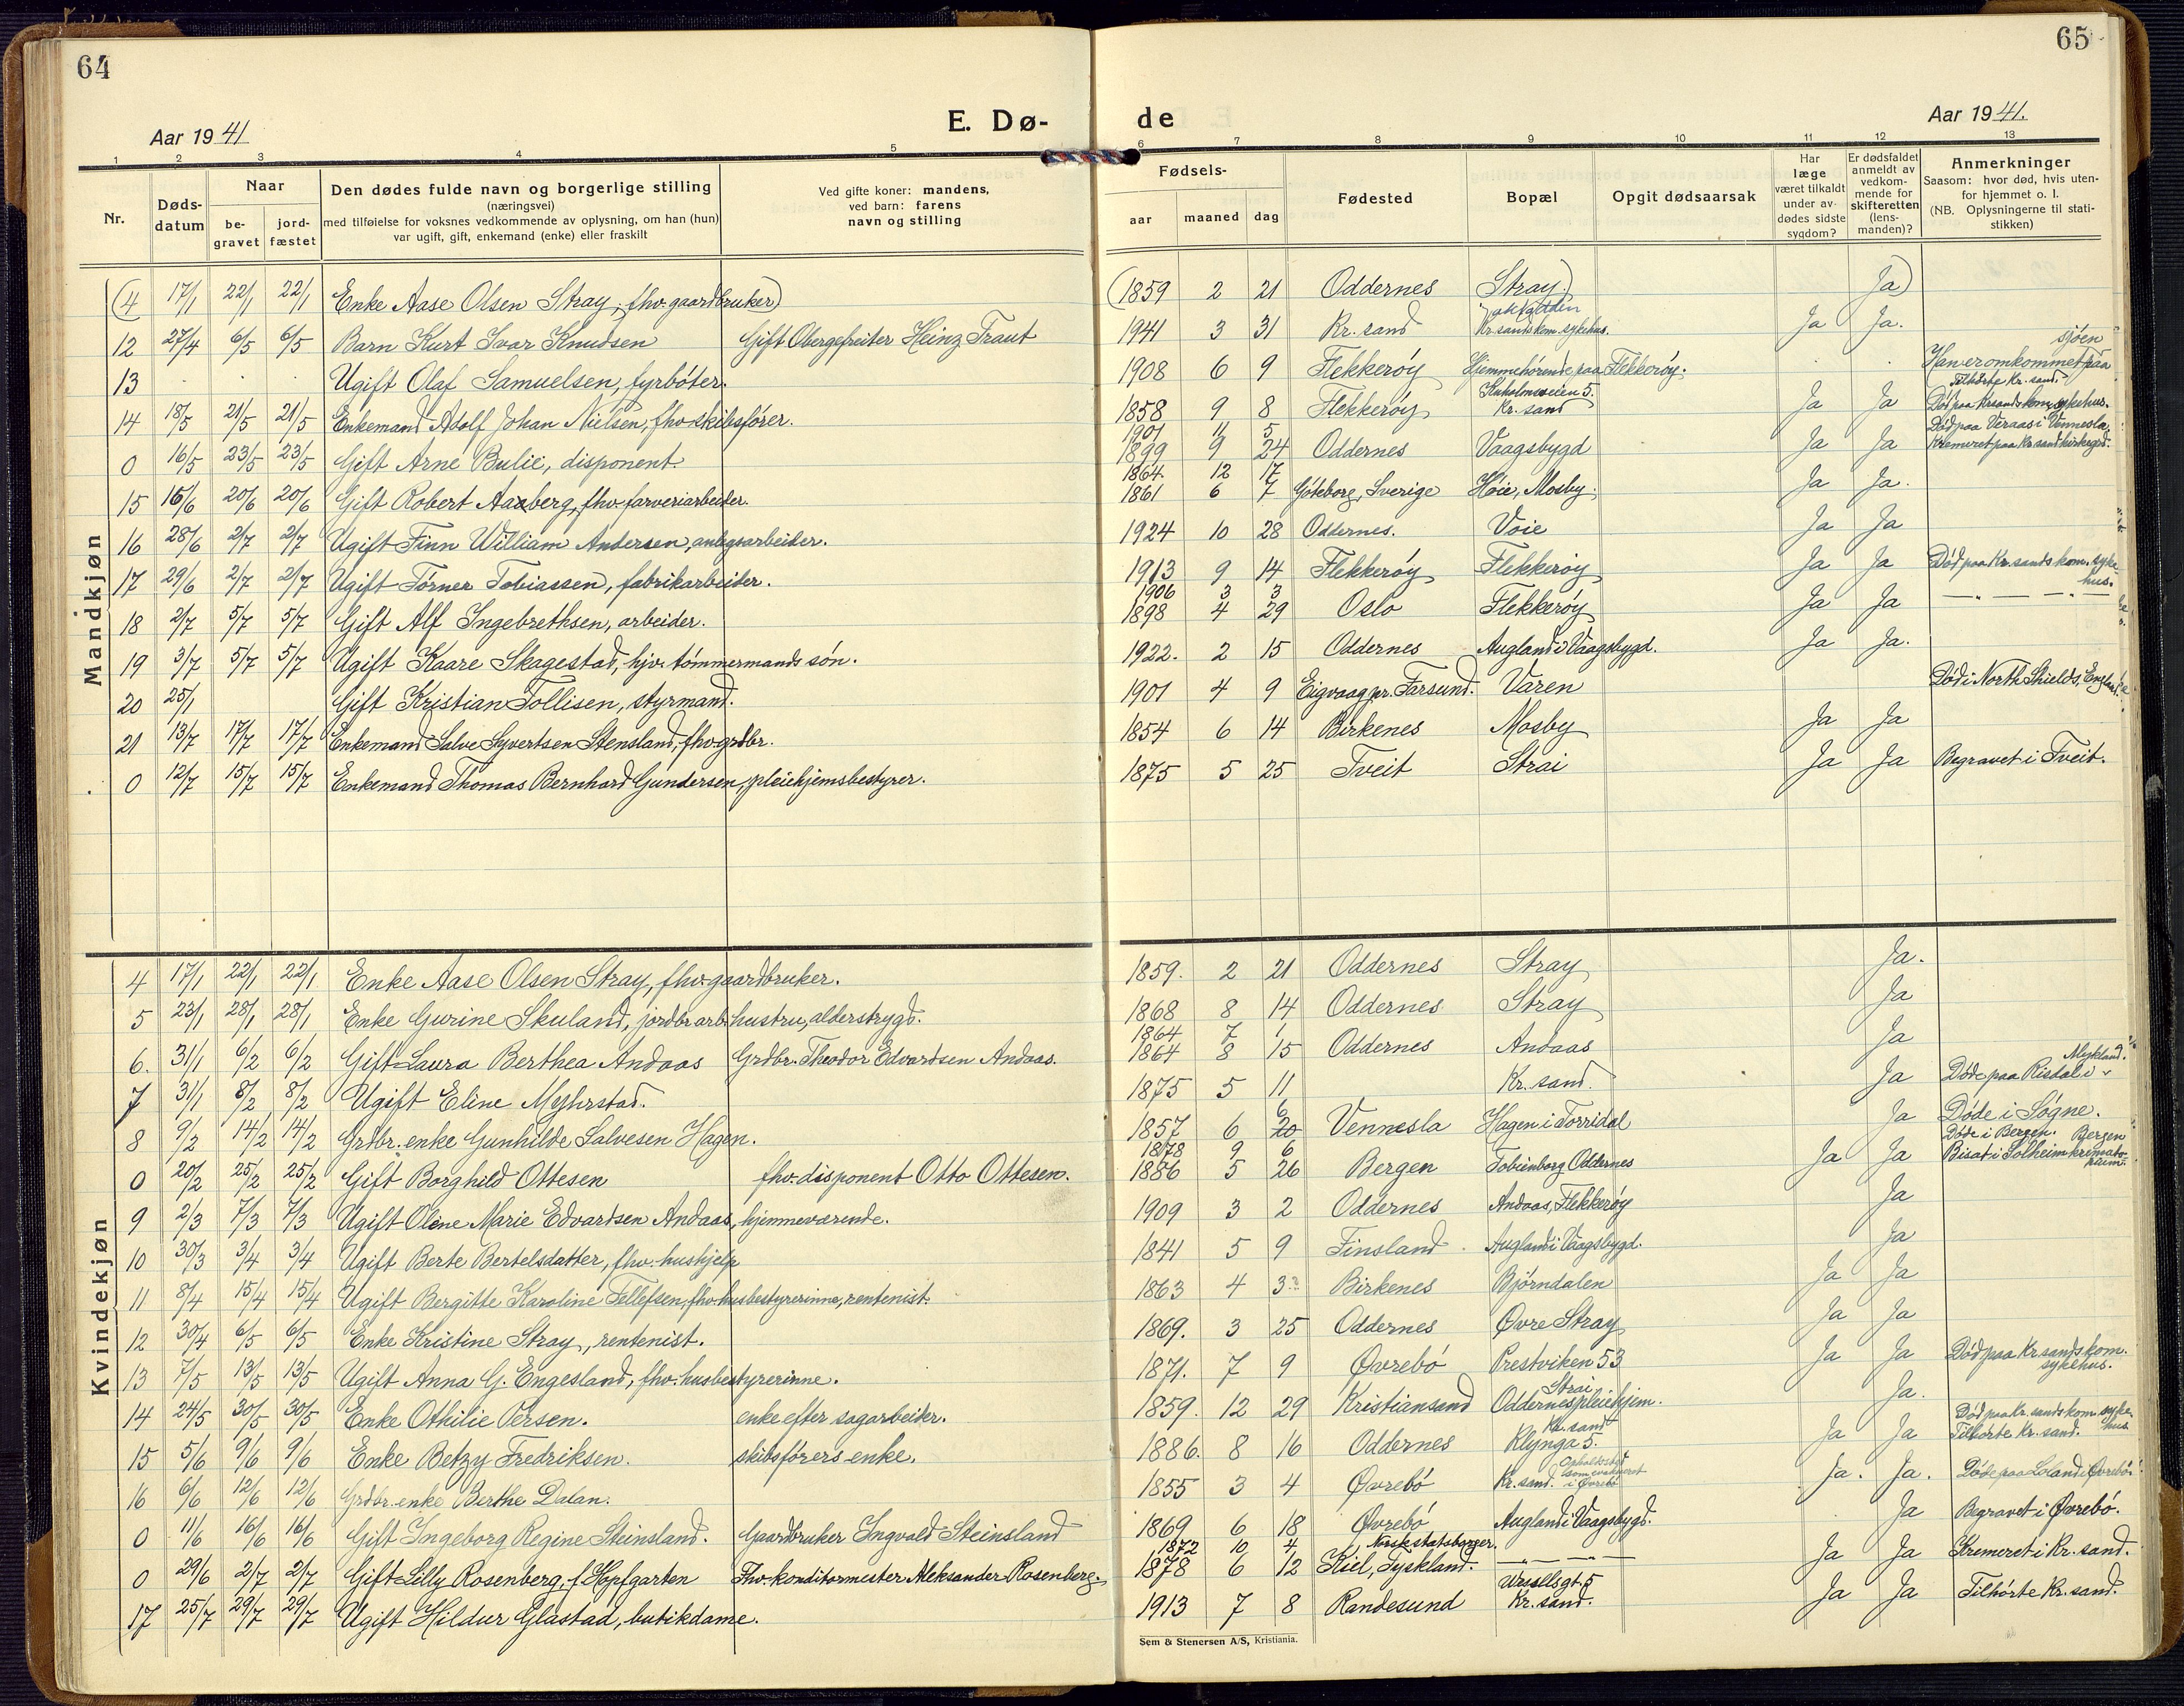 64
65
Aar 1941
E. Dø-
de
Aar 1941.
1 2 3 4 5 6 7 8 9 10 11 12 13
Nr.
Døds-
datum
Naar
be-
gravet
jord-
fæstet
Den dødes fulde navn og borgerlige stilling
(næringsvei)
med tilføielse for voksnes vedkommende av oplysning, om han (hun)
var ugift, gift, enkemand (enke) eller fraskilt
Ved gifte koner: mandens,
ved barn: farens
navn og stilling
Fødsels-
aar
maaned
dag
Fødested
Bopæl
Opgit dødsaarsak
Har
læge
været tilkaldt
under av-
dødes sidste
sygdom?
Er dødsfaldet
anmeldt av
vedkom-
mende for
skifteretten
(lens-
manden)?
Anmerkninger
Saasom: hvor død, hvis uten-
for hjemmet o. l.
(NB. Oplysningerne til stati-
stikken)
Mandkjøn
(4 17/1 22/1 22/1 Enke Aase Olsen Stray, fhv. gaardbruker) (1859 2 21 Oddernes Stray. Ja)
12 27/4 6/5 6/5 Barn Kurt Ivar Knudsen Gift Obergefreiter Heinz Traut 1941 3 31 Kr. sand Kr. sands kom. sykehus. Ja Ja.
13 Ugift Olaf Samuelsen, fyrbøter. 1908 6 9 Flekkerøy Hjemmehørende paa Flekkerøy. Han er omkommet paa sjøen
14 18/5 21/5 21/5 Enkemand Adolf Johan Nielsen, fhv. skibsfører. 1858 9 8 Flekkerøy Kuholmsveien 5. Kr. sand Ja Ja Tilhørte Kr. sand. Død paa Kr. sands kom. sykehus.
0 16/5 23/5 23/5 Gift Arne Bulie, disponent. 1901 11 5 1899 9 24 Oddernes Vaagsbygd Ja Ja Død paa Veraas i Vennesla. Kremeret paa Kr. sand kirkegd.
15 16/6 20/6 20/6 Gift Robert Aaxberg, fhv. farveriarbeider. 1864. 12 17 1861 6 7 Göteborg, Sverige Høie, Mosby. Ja Ja.
16 28/6 2/7 2/7 Ugift Finn William Andersen, anlegsarbeider. 1924 10 28 Oddernes. Voie Ja Ja
17 29/6 2/7 2/7 Ugift Torner Tobiassen, fabrikarbeider. 1913 9 14 Flekkerøy Flekkerøy Ja Ja Død paa Kr. sands kom. syke-hus.
18 2/7 5/7 5/7 Gift Alf Ingebrethsen, arbeider. 1906 3 3 1898 4 29 Oslo Flekkerøy Ja Ja — " — " —
19 3/7 5/7 5/7 Ugift Kaare Skagestad, hjv. tømmermands søn. 1922. 2 15 Oddernes Augland i Vaagsbygd. Ja Ja.
20 25/1 Gift Kristian Tollisen, styrmand. 1901 4 9 Eigvaag pr. Farsund. Varen Død i North Shields, England.
21 13/7 17/7 17/7 Enkemand Salve Syvertsen Stensland, fhv. grdbr. 1854 6 14 Birkenes Mosby Ja Ja
0 12/7 15/7 15/7 Enkemand Thomas Bernhard Gundersen, pleiehjemsbestyrer. 1875 5 25 Tveit Strai Ja Ja Begravet i Tveit.
Kvindekjøn
4 17/1 22/1 22/1 Enke Aase Olsen Stray, fhv. gaardbruker. 1859. 2 21 Oddernes Stray Ja.
5 23/1 28/1 28/1 Enke Gurine Skuland, jordbr. arb. hustru, alderstrygd. 1868 8 14 Oddernes Stray Ja
6. 31/1 6/2 6/2 Gift Laura Berthea Andaas Grdbr. Theodor Edvardsen Andaas. 1864 7 1 1864 8 15 Oddernes Andaas Ja
7 31/1 8/2 8/2 Ugift Eline Myhrstad. 1875 5 11 Kr. sand. Ja Døde paa Risdal i Mykland.
8 9/2 14/2 14/2 Grdbr. enke Gunhilde Salvesen Hagen. 1857 6 6 20 Vennesla Hagen i Torridal Ja Døde i Søgne.
0 20/2 25/2 25/2 Gift Borghild Ottesen fhv. disponent Otto Ottesen. 1878 9 6 1886 5 26 Bergen Tobienborg Oddernes Ja Ja Døde i Bergen. Bisat i Solheim krematorium Bergen
9 2/3 7/3 7/3 Ugift Oline Marie Edvardsen Andaas, hjemmeværende. 1909 3 2 Oddernes Andaas, Flekkerøy Ja
10 30/3 3/4 3/4 Ugift Berte Bertelsdatter, fhv. hushjelp 1841 5 9 Finsland Augland i Vaagsbygd. Ja
11 8/4 15/4 15/4 Ugift Bergitte Karoline Tellefsen, fhv. husbestyrerinne, rentenist. 1863 4 3 Birkenes Bjørndalen Ja Ja
12 30/4 6/5 6/5 Enke Kristine Stray, rentenist. 1869. 3 25 Oddernes Øvre Stray Ja Ja
13 7/5 13/5 13/5 Ugift Anna G. Engesland, fhv. husbestyrerinne. 1871. 7 9 Øvrebø Prestviken 53 Ja Ja Død paa Kr. sands kom. sykehus.
14 24/5 30/5 30/5 Enke Othilie Persen. enke efter sagarbeider. 1859. 12 29 Kristiansand Strai Oddernes pleiehjem. Ja.
15 5/6 9/6 9/6 Enke Betzy Fredriksen. skibsførers enke. 1886. 8 16 Oddernes Kr. sand Klynga 5. Ja Ja Død paa Kr. sands kom. syke-hus Tilhørte Kr. sand.
16 6/6 12/6 12/6 Grdbr. enke Berthe Dalan. 1855 3 4 Øvrebø Kr. sand. Opholdssted som evakueret i Øvrebø Ja. Ja. Døde paa Loland i Øvrebø.
0 11/6 16/6 16/6 Gift Ingeborg Regine Steinsland. Gaardbruker Ingvald Steinsland 1869 6 18 Øvrebø Augland i Vaagsbygd. Ja Begravet i Øvrebø.
0 29/6 2/7 2/7 Gift Lilly Rosenberg, f. Hopfgarten Fhv. konditormester Aleksander Rosenberg. 1872 10 4 1878 6 12 Kiel, Tyskland. Norsk statsborger. — " — " — Ja Ja Kremeret i Kr. sand.
17 25/7 29/7 29/7 Ugift Hildur Glastad, butikdame. 1913 7 8 Randesund Wesselsgt. 5 Kr. sand. Ja Ja Tilhørte Kr. sand.
Sem & Stenersen A/S, Kristiania.